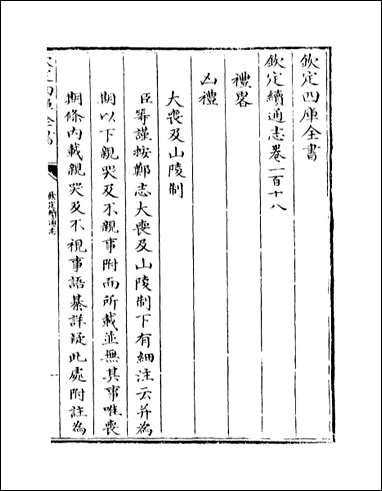 欽定四庫全書
欽定續通志卷一百十八
禮畧
凶禮
大喪及山陵制
臣等謹按鄭志大喪及山陵制下有細注云并為
期以下親哭及不親事附而所載並無其事唯喪
期條內載親哭及不視事語綦詳疑此處附註為
欽定四庫全書
欽定續通志
一